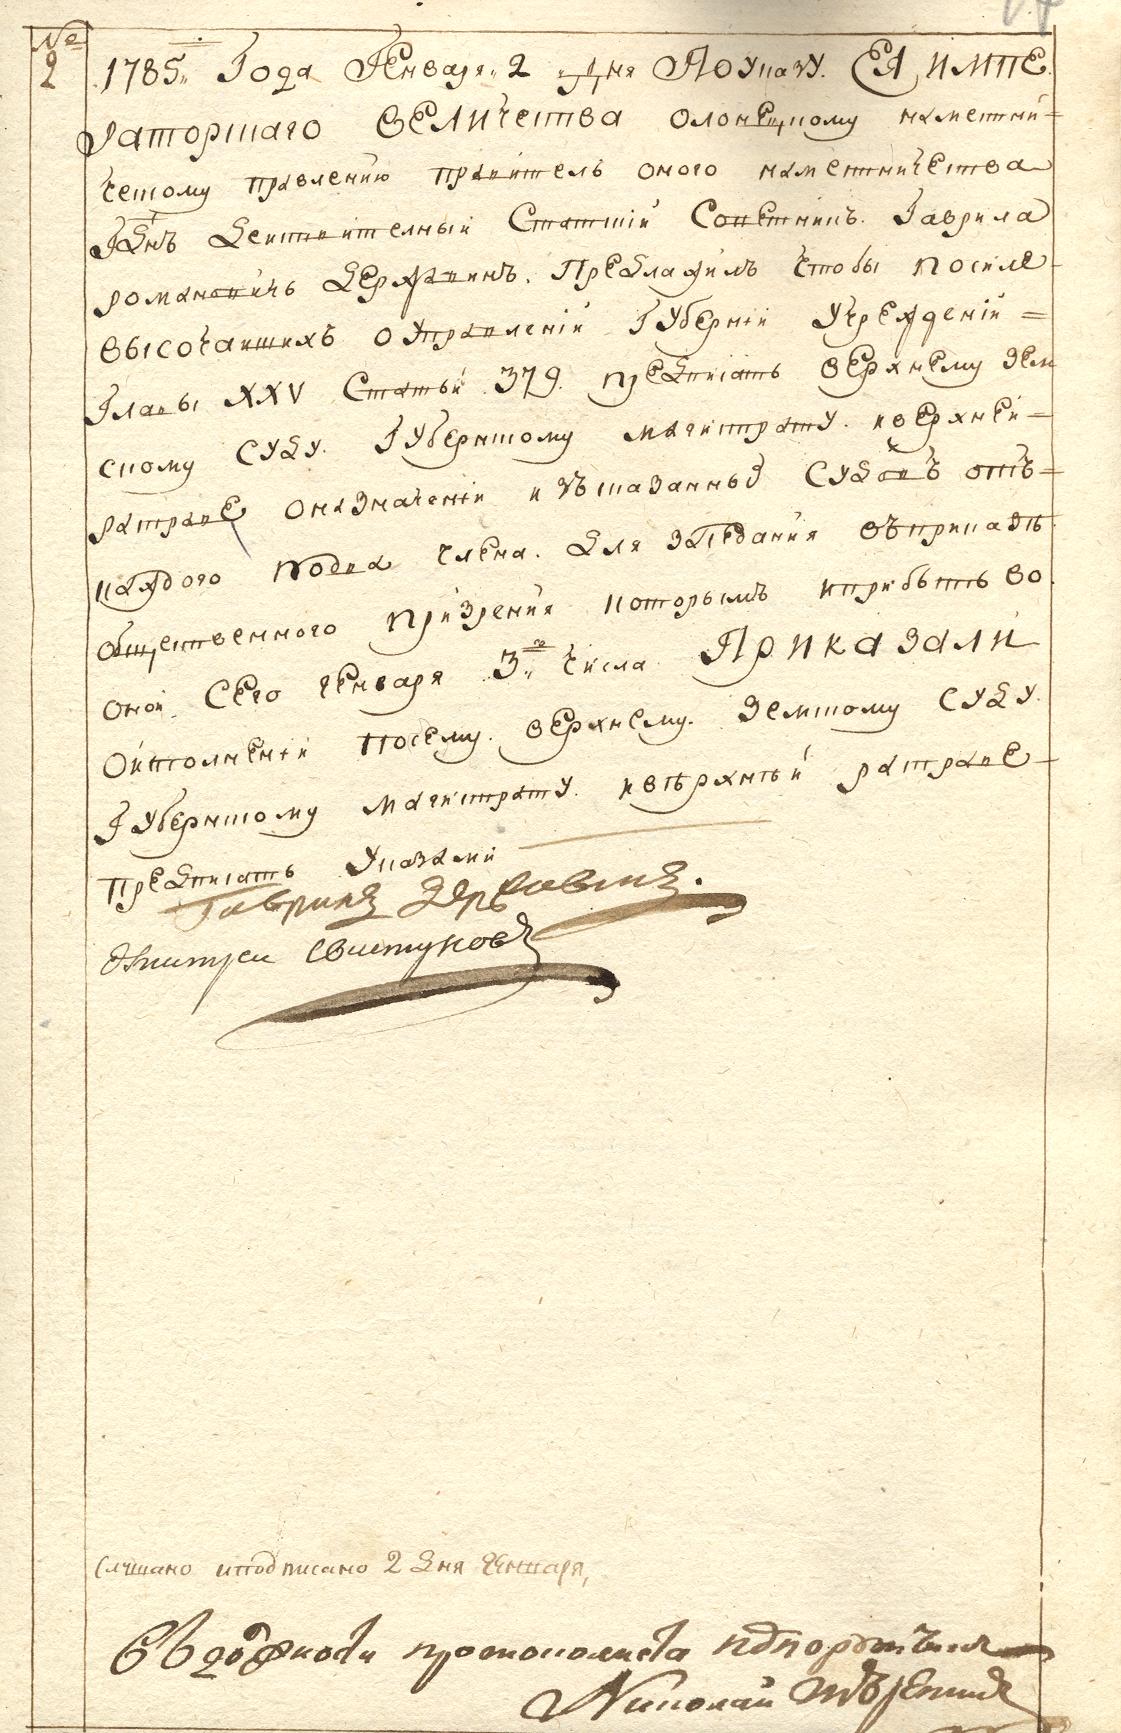 №
2
1785. Года Генваря 2 дня По указу ЕЯ ИМПЕ
раторскаго Величества олонецкому намѣстни-
ческому правлению правитель оного наместничества
Гднъ Действителный Статский Советникъ Гаврила
романовичь Державинъ. Предлажилъ чтобы посиле
высочайшихъ о управленіи Губерніи Учрежденій
Главы XXV Статьи 379. предписать верхнему зем
скому суду. Губернскому магистрату. и верхней
ратраве о назначеніи изъ сказанныхъ судовъ отъ
каждого по два члена. Для заседания въ приказъ
общественного призрения которымъ и прибыть во
оной сего генваря 3го числа Приказали
О исполнении посему. верхнему. Земскому суду.
Губернскому магистрату. и верхней ратраве
предписать указами
Гаврила Державинъ.
Дмитреи Свистуновъ
Слушано и подписано 2 дня Генваря,
В должности протоколиста
Николай